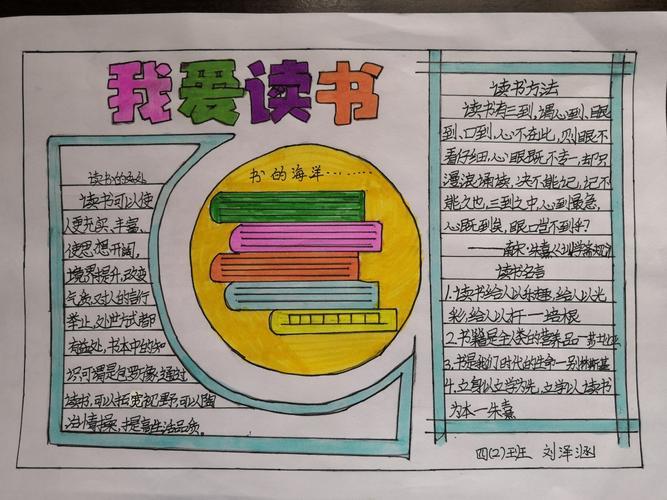 我爱读书
读书的好处
读书可以使
人更充实、丰富、
使思想开阔,
境界提升,改变
气质,对人的言行
举止,处世方式都
有益处,书本中的知
识可谓是包罗万像,通过
读书,可以拓宽视野,可以陶
冶情操,提高生活品质。
书的海洋………
读书方法
读书有三到,谓心到、眼
到、口到,心不在此,则眼不
看仔细,心眼既不专一,却只
漫浪诵读,决不能记,记不
能久也,三到之中,心到最急,
心既到矣,眼口岂不到乎?
——南宋·朱熹《训学斋规》
读书名言
1.读书给人以乐趣,给人以光
彩,给人以才干一培根
2.书籍是全人类的营养品一莎士比亚
3.书是我们时代的生命一别林斯基
4.立身以立学为先,立学以读书
为本一朱熹
四(2)班 刘泽涵